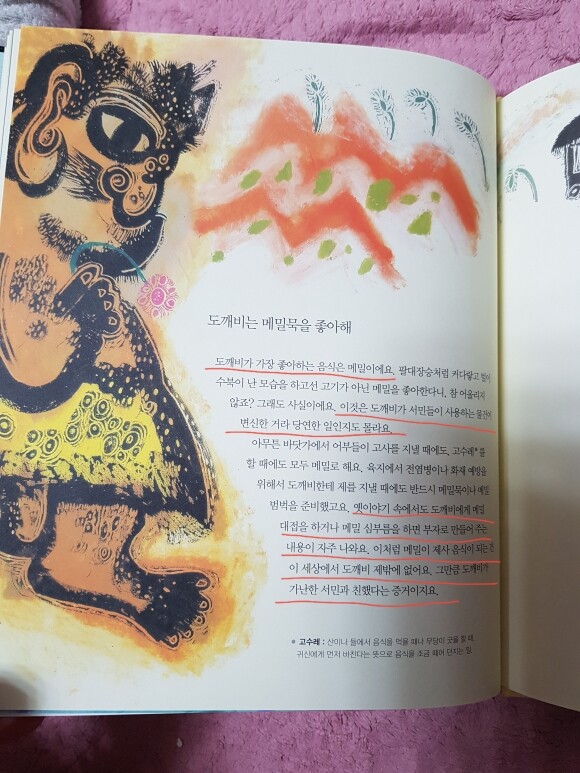 도깨비는 메밀묵을 좋아해
도깨비가 가장 좋아하는 음식은 메밀이에요. 팔대장승처럼 커다랗고 털이
수북이 난 모습을 하고선 고기가 아닌 메밀을 좋아한다니, 참 어울리지
않죠? 그래도 사실이에요. 이것은 도깨비가 서민들이 사용하는 물건이
변신한 거라 당연한 일인지도 몰라요.
아무튼 바닷가에서 어부들이 고사를 지낼 때에도, 고수레*를
할 때에도 모두 메밀로 해요. 육지에서 전염병이나 화재 예방을
위해서 도깨비한테 제를 지낼 때에도 반드시 메밀묵이나 메밀
범벅을 준비했고요. 옛이야기 속에서도 도깨비에게 메밀
대접을 하거나 메밀 심부름을 하면 부자로 만들어 주는
내용이 자주 나와요. 이처럼 메밀이 제사 음식이 되는 건
이 세상에서 도깨비 제밖에 없어요. 그만큼 도깨비가
가난한 서민과 친했다는 증거이지요.
* 고수레 : 산이나 들에서 음식을 먹을 때나 무당이 굿을 할 때,
귀신에게 먼저 바친다는 뜻으로 음식을 조금 떼어 던지는 일.